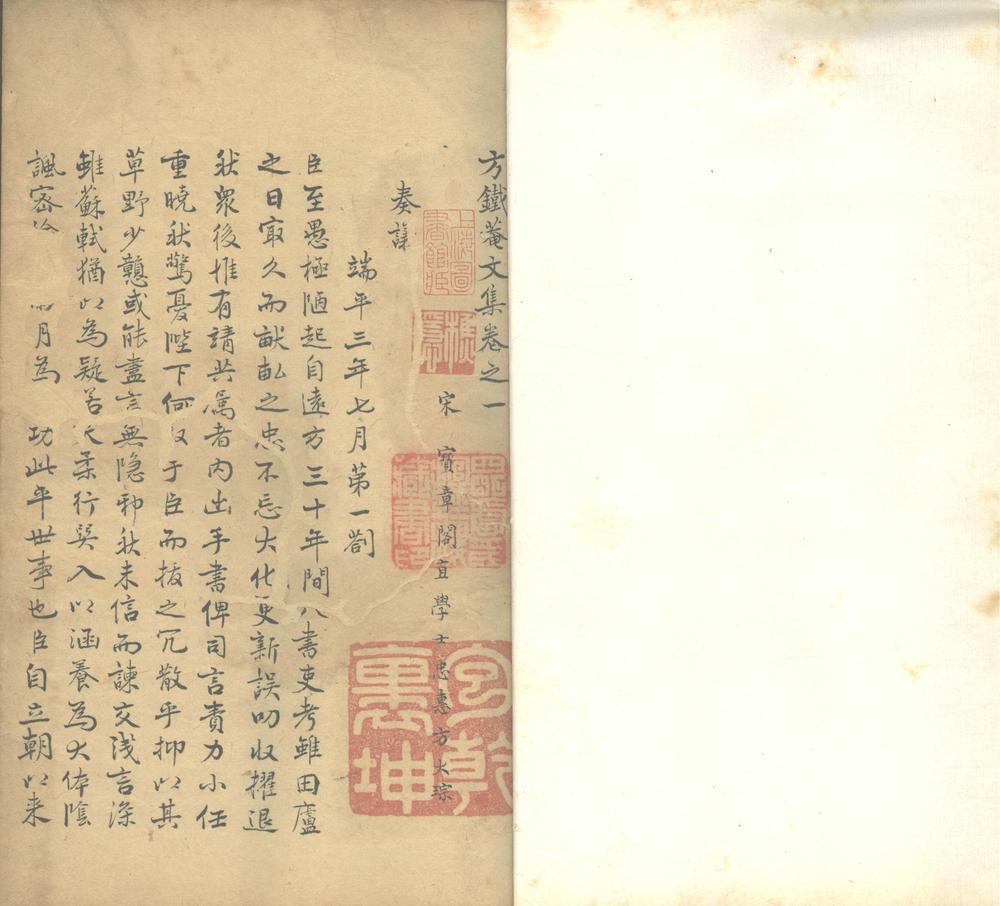 方鐵菴文集卷之一
宋 寶章閣直學士忠惠方大琮
奏議
端平三年七月第一劄
臣至愚極陋起自遠方三十年間八書吏考雖田廬
之日寔久而畎畝之忠不忘大化更新誤叨收擢退
然衆後惟有請共屬者內出手書俾司言責力小任
重曉然驚憂陛下何取于臣而拔之冗散乎抑以其
草野少戇或能盡言無隱邪然未信而諫交浅言深
雖蘇軾猶以為疑若 柔行巽入以涵養為大体陰
諷密 月為 功此平世事也臣自立朝以来
上海圖書館藏
包乾裹坤